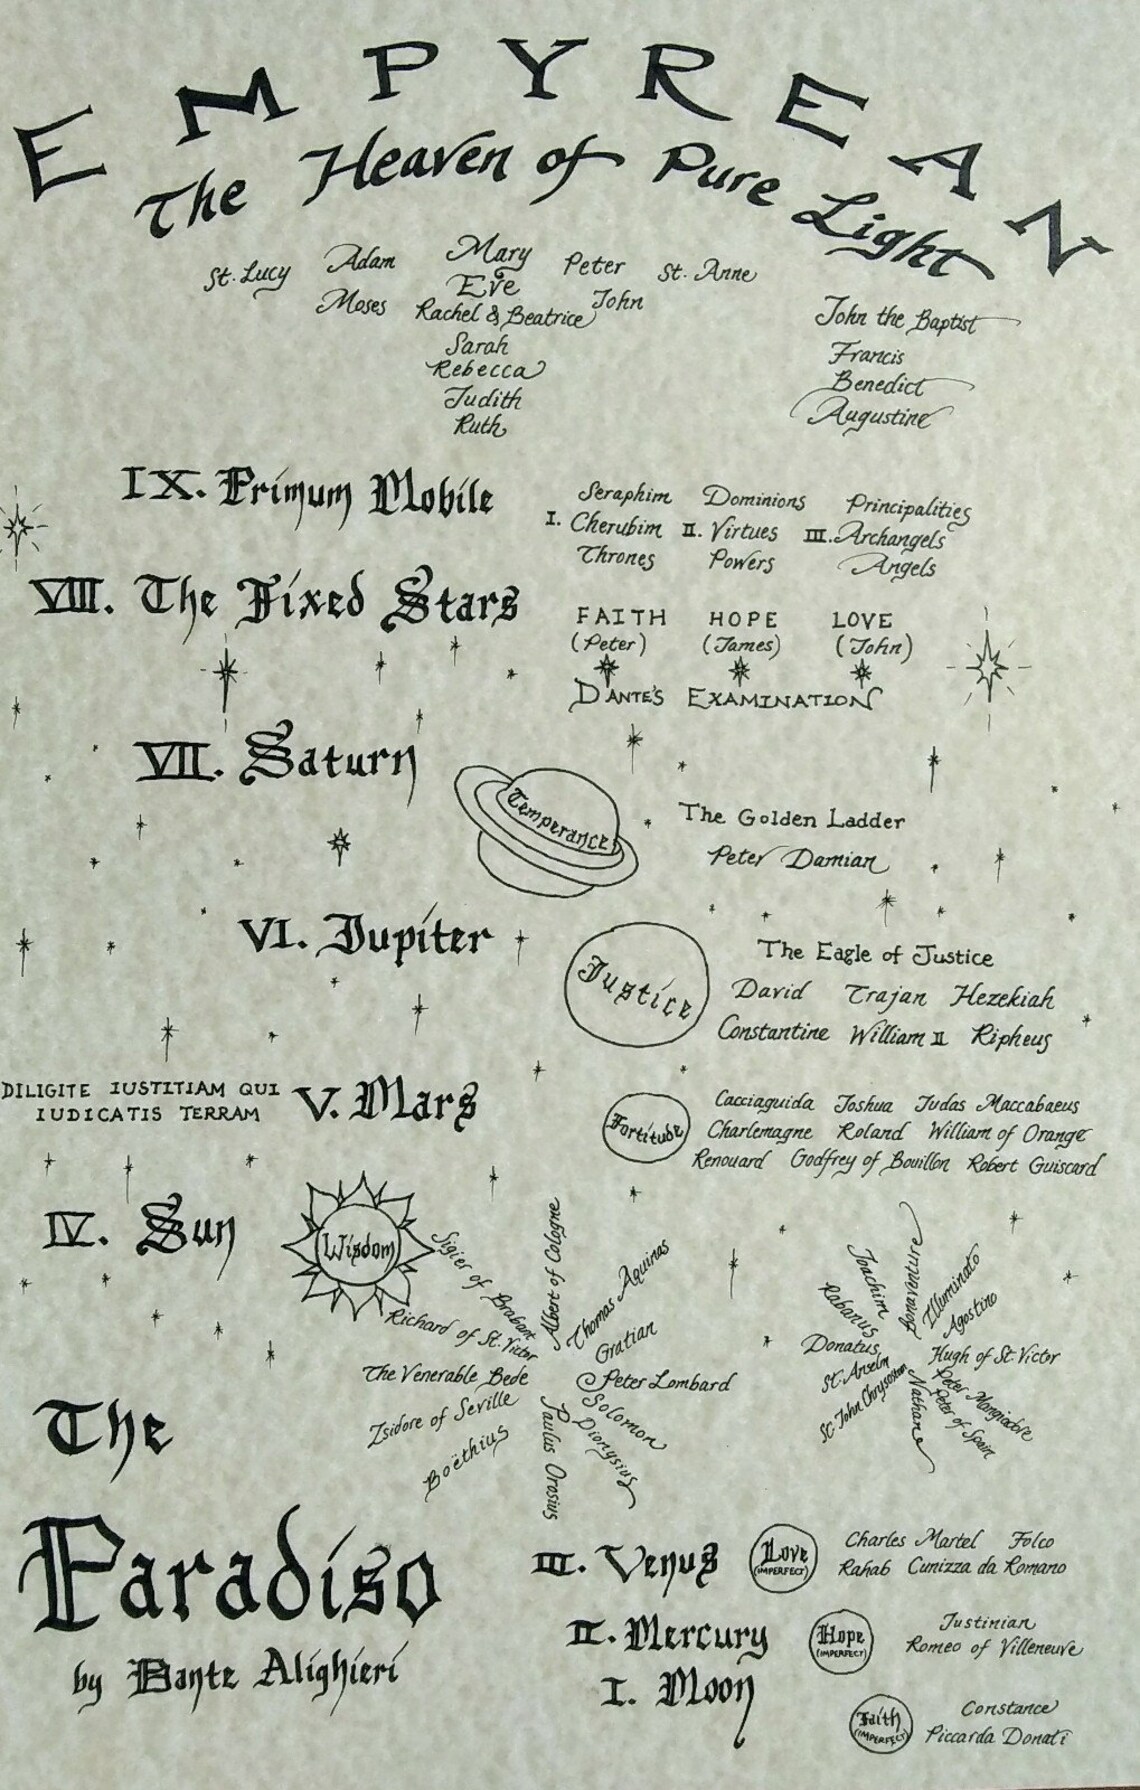 EMPYREAN
The Heaven of Pure Light
St. Lucy Adam Mary Peter St. Anne
Eve
Moses Rachel & Beatrice John
Sarah
Rebecca
Judith
Ruth
John the Baptist
Francis
Benedict
Augustine
IX. Primum Mobile
I. Seraphim
Cherubim
Thrones
II. Dominions
Virtues
Powers
III. Principalities
Archangels
Angels
VIII. The Fixed Stars
FAITH HOPE LOVE
(Peter) (James) (John)
DANTE'S EXAMINATION
VII. Saturn
Temperance
The Golden Ladder
Peter Damian
VI. Jupiter
Justice
The Eagle of Justice
David Trajan Hezekiah
Constantine William II Ripheus
DILIGITE IUSTITIAM QUI
IUDICATIS TERRAM
V. Mars
Fortitude
Cacciaguida Joshua Judas Maccabaeus
Charlemagne Roland William of Orange
Renouard Godfrey of Bouillon Robert Guiscard
IV. Sun
Wisdom
Albert of Cologne
Thomas Aquinas
Gratian
Peter Lombard
Solomon
Dionysius
Paulus Orosius
Boëthius
Isidore of Seville
The Venerable Bede
Richard of St. Victor
Sigier of Brabant
Bonaventure
Illuminato
Agostino
Hugh of St. Victor
Peter Mangiadore
Peter of Spain
Nathan
St. John Chrysostom
St. Anselm
Donatus
Rabanus
Joachim
The
Paradiso
by Dante Alighieri
III. Venus
Love
(IMPERFECT)
Charles Martel Folco
Rahab Cunizza da Romano
II. Mercury
Hope
(IMPERFECT)
Justinian
Romeo of Villeneuve
I. Moon
Faith
(IMPERFECT)
Constance
Piccarda Donati